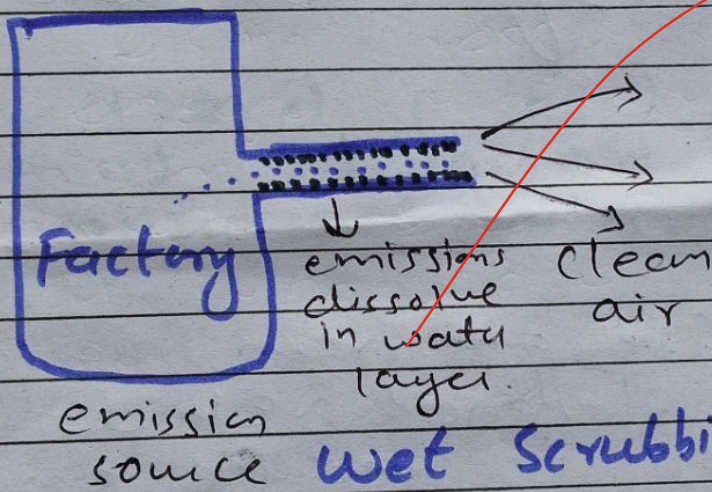 Factory
emissions
dissolve
in water
layer.
clean
air
emission
source
Wet Scrubbi